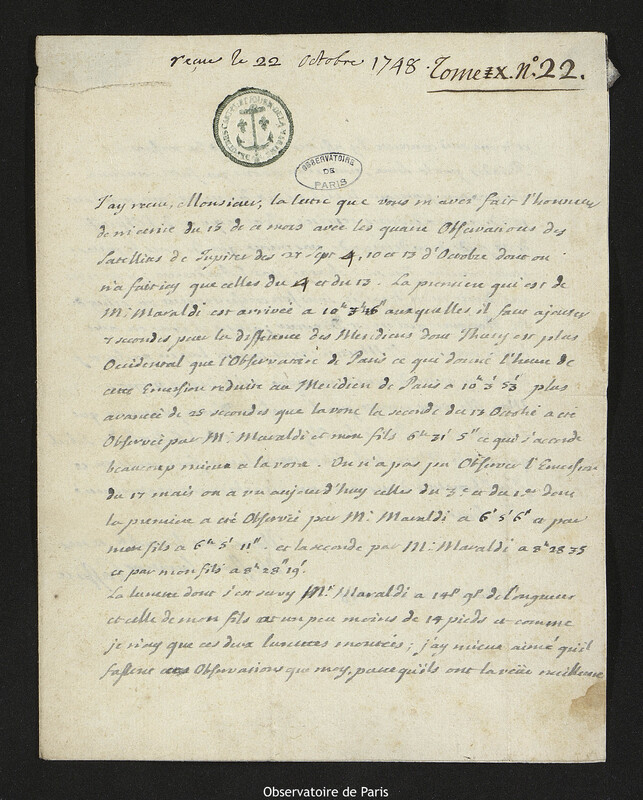 reçue le 22 octobre 1748. Tome IX. N.° 22.
OBSERVATOIRE
DE
PARIS
J'ay recu, Monsieur, la lettre que vous m'aves fait l'honneur
de m'ecrire du 15 de ce mois avec les quatre Observations des
Satellites de Jupiter des 27 Sept 4, 10 et 13 d'Octobre dont on
n'a fait icy que celles du 4 et du 13. La premiere qui est de
Mr. Maraldi est arrivée a 10h 3' 46" auxquelles il faut ajouter
7 secondes pour la difference des Meridiens dont Thury est plus
Occidental que l'Observatoire de Paris ce qui donne l'heure de
cette Emersion reduite au Meridien de Paris a 10h 3' 53" plus
avancée de 25 secondes que la votre la seconde du 13 Octobre a eté
Observée par Mr. Maraldi et mon fils 6h 31' 5" ce qui s'accorde
beaucoup mieux a la votre. On n'a pas pu Observer l'Emersion
du 17 mais on a vu aujourd'huy celles du 3e et du 1er dont
la premiere a eté Observée par Mr. Maraldi a 6h 5' 6" et par
mon fils a 6h 5' 11". et la seconde par Mr. Maraldi a 8h 28 35
et par mon fils a 8h 28' 19".
La lunette dont s'est servy Mr. Maraldi a 14 de longueur
et celle de mon fils est un peu moins de 14 pieds et comme
je n'ay que ces deux lunettes montées; j'ay mieux aimé qu'il
fassent ces Observations que moy, parce qu'ils ont la veüe meilleure
Observatoire de Paris